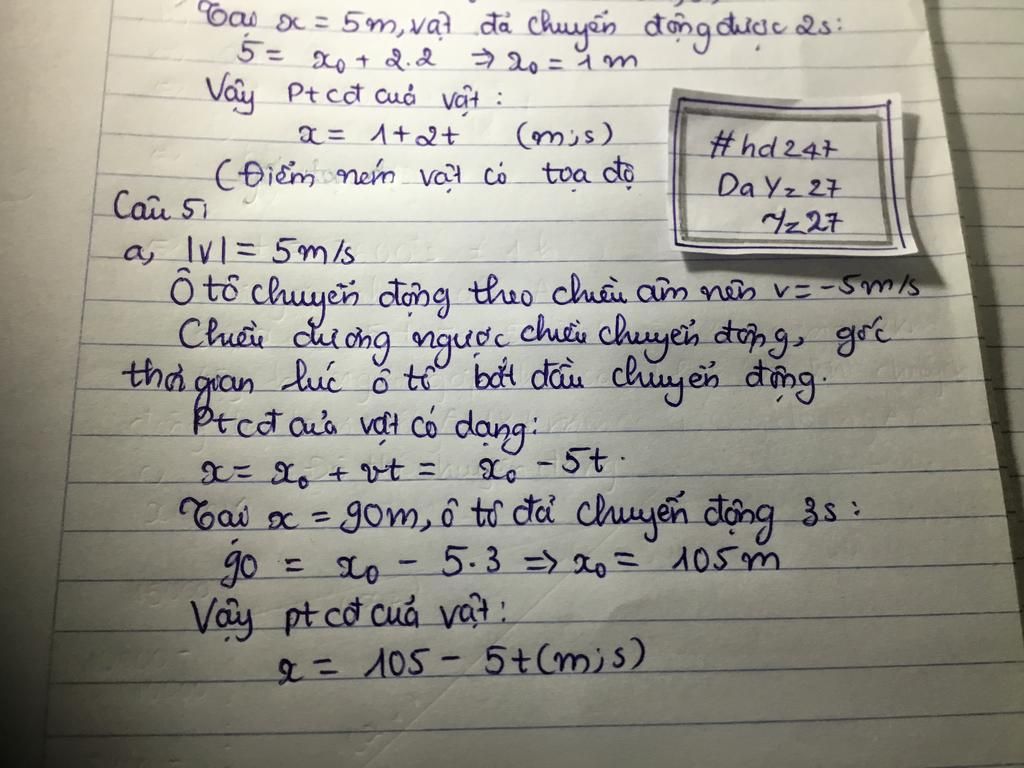 Tại x = 5m, vật đã chuyển động được 2s:
5 = x₀ + 2.2 => x₀ = 1m
Vậy Ptcđ của vật:
x = 1+2t (m;s)
(Điểm ném vật có tọa độ
#hd247
DaYz27
Yz27
Câu 5;
a, |v| = 5m/s
Ô tô chuyển động theo chiều âm nên v = -5m/s
Chiều dương ngược chiều chuyển động, gốc
thời gian lúc ô tô bắt đầu chuyển động.
Ptcđ của vật có dạng:
x = x₀ + vt = x₀ - 5t.
Tại x = 90m, ô tô đã chuyển động 3s:
90 = x₀ - 5.3 => x₀ = 105m
Vậy ptcđ của vật:
x = 105 - 5t (m;s)